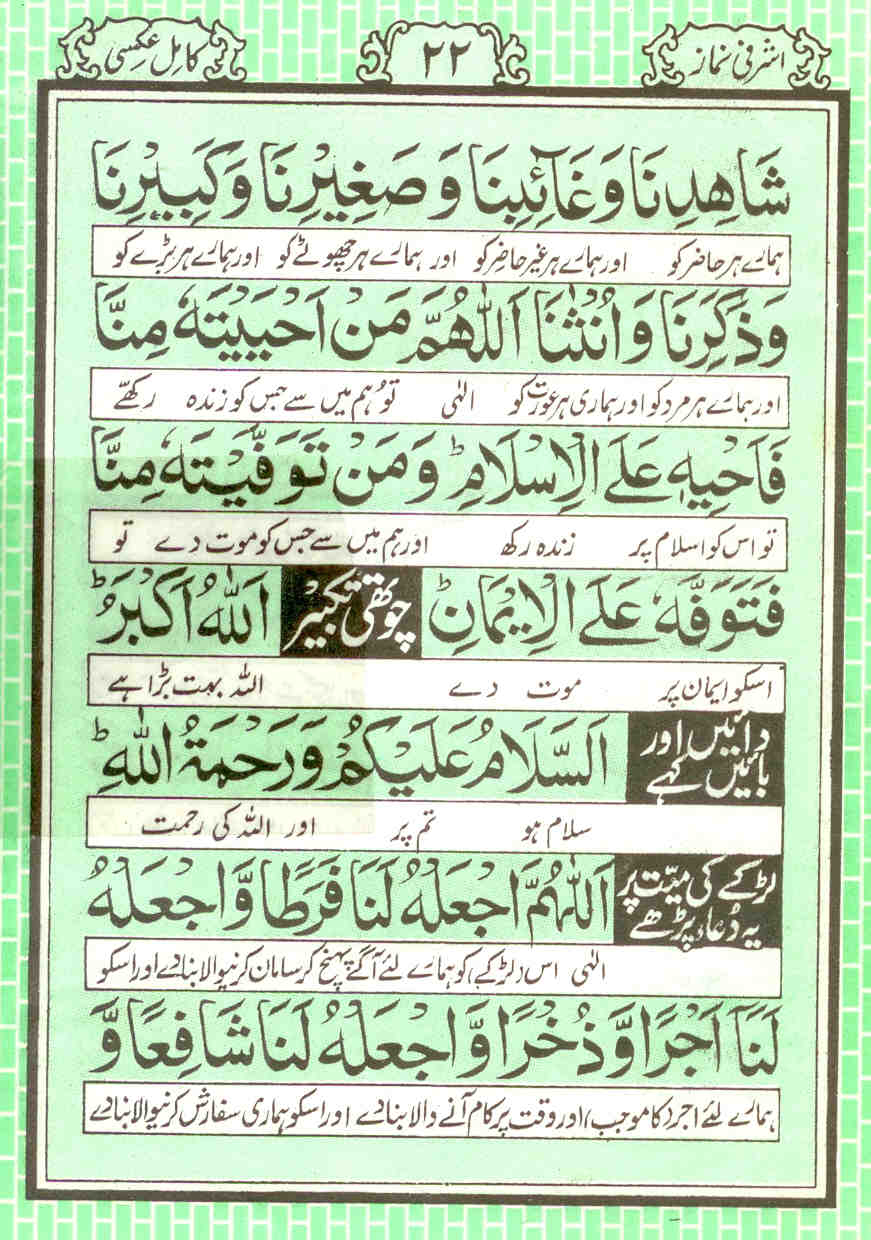 اشرفی نماز ۲۲ کامل عکسی
شَاهِدِنَا وَغَآئِبِنَا وَصَغِيْرِنَا وَكَبِيْرِنَا
ہمارے ہر حاضر کو اور ہمارے ہر غیر حاضر کو اور ہمارے ہر چھوٹے کو اور ہمارے ہر بڑے کو
وَذَكَرِنَا وَاُنْثٰنَا اَللّٰهُمَّ مَنْ اَحْيَيْتَهٗ مِنَّا
اور ہمارے ہر مرد کو اور ہماری ہر عورت کو الٰہی تو ہم میں سے جس کو زندہ رکھے
فَاَحْيِهٖ عَلَى الْاِسْلَامِ ؕ وَمَنْ تَوَفَّيْتَهٗ مِنَّا
تو اس کو اسلام پر زندہ رکھ اور ہم میں سے جس کو موت دے تو
فَتَوَفَّهٗ عَلَى الْاِيْمَانِ ؕ چوتھی تکبیر اَللّٰهُ اَكْبَرُ ؕ
اسکو ایمان پر موت دے اللہ بہت بڑا ہے
دائیں اور بائیں کہے اَلسَّلَامُ عَلَيْكُمْ وَرَحْمَةُ اللّٰهِ ؕ
سلام ہو تم پر اور اللہ کی رحمت
لڑکے کی میّت پر یہ دُعاء پڑھے اَللّٰهُمَّ اجْعَلْهُ لَنَا فَرَطًا وَّاجْعَلْهُ
الٰہی اس (لڑکے) کو ہمارے لئے آگے پہنچ کر سامان کرنیوالا بنا دے اور اسکو
لَنَآ اَجْرًا وَّذُخْرًا وَّاجْعَلْهُ لَنَا شَافِعًا وَّ
ہمارے لئے اجر (کا موجب) اور وقت پر کام آنے والا بنا دے اور اسکو ہماری سفارش کرنیوالا بنا دے